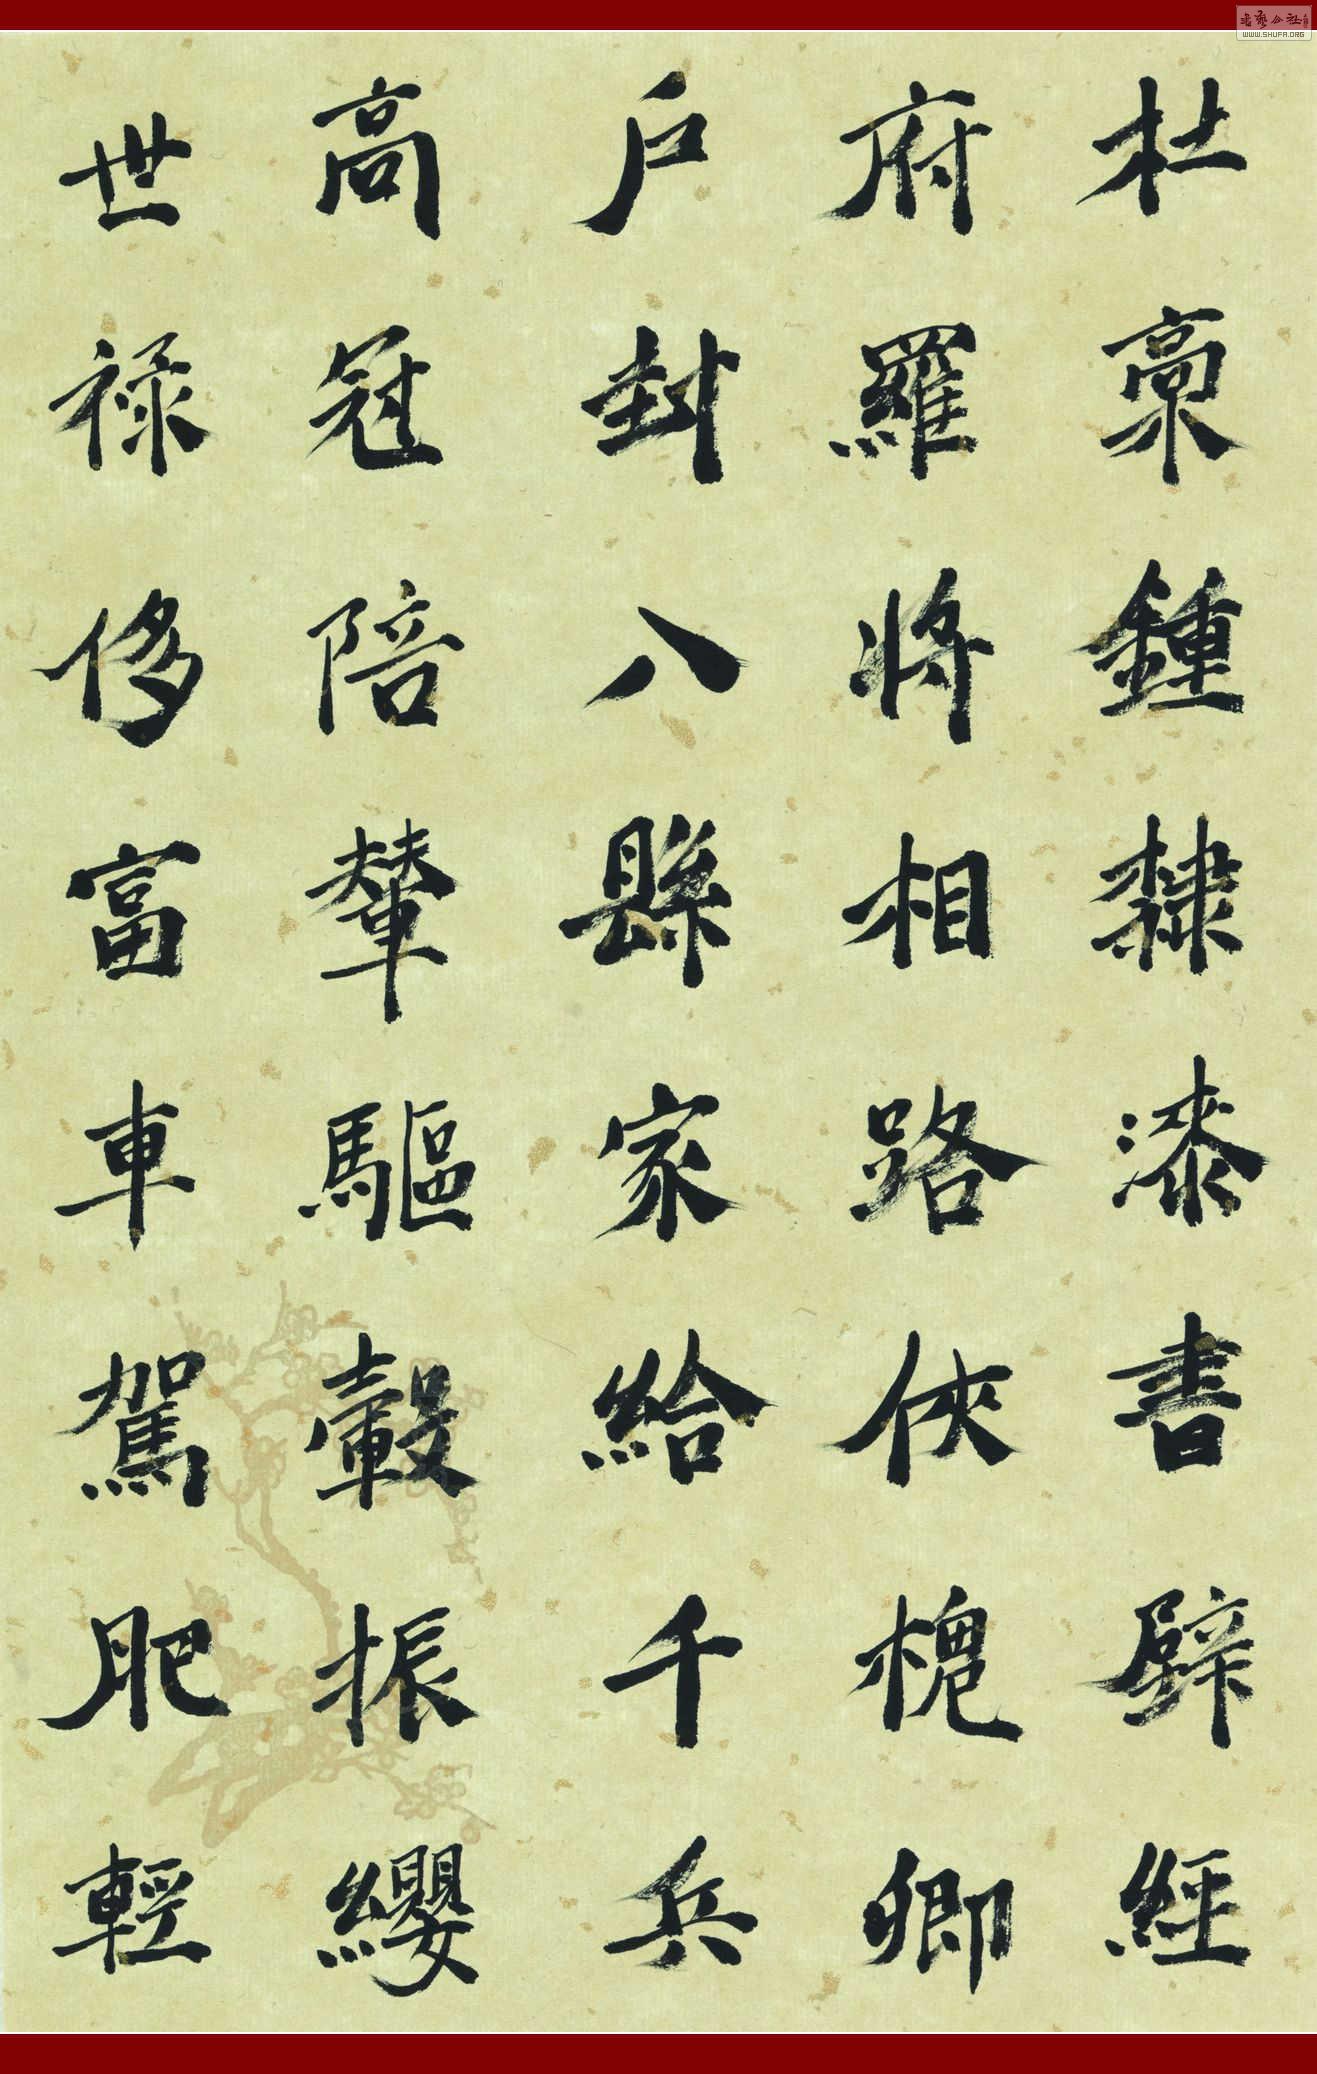 杜稾鍾隸漆書壁經
府羅將相路俠槐卿
戶封八縣家給千兵
高冠陪輦驅轂振纓
世祿侈富車駕肥輕
WWW.SHUFA.ORG